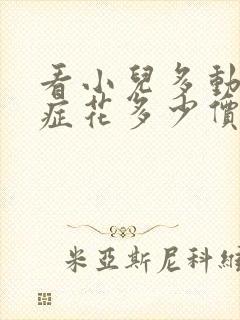 看小兒多動
症花多少價
米亞斯尼科維